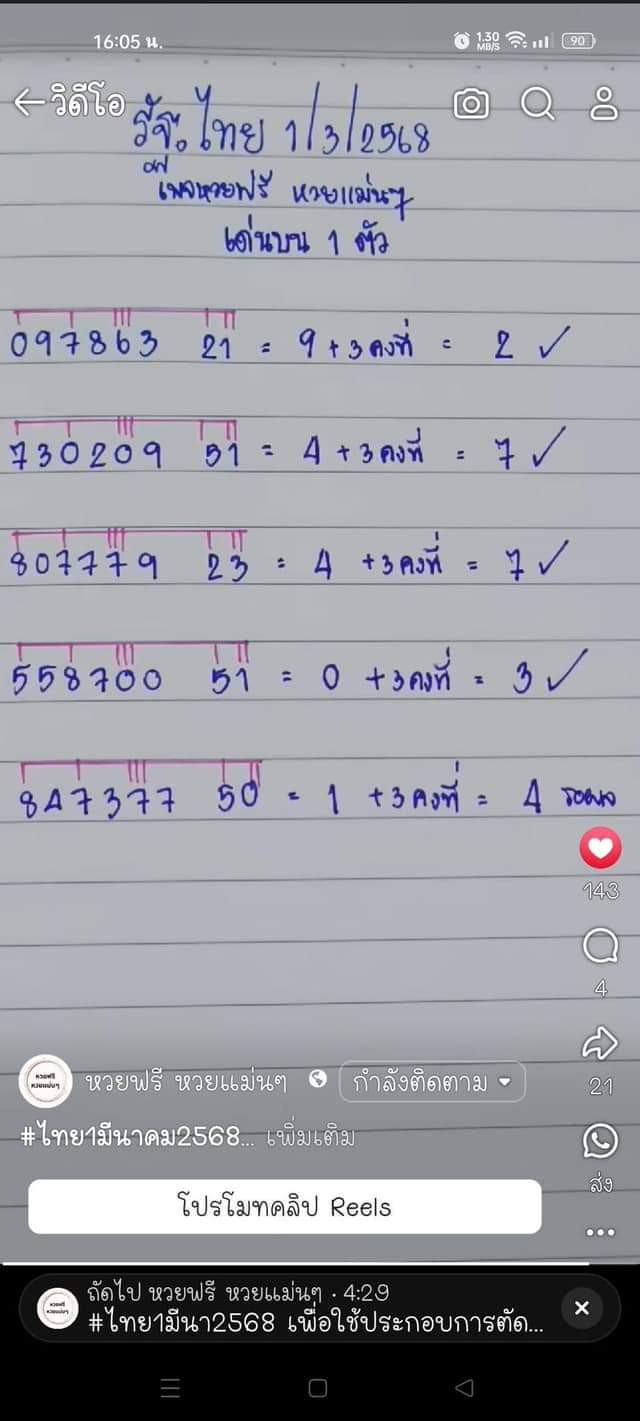 16:05 น.
1.30 MB/S
90
วิดีโอ
ไทย 1/3/2568
เพจหวยฟรี หวยแม่นๆ
เด่นบน 1 ตัว
097863 21 = 9 + 3 คงที่ = 2 ✓
730209 51 = 4 + 3 คงที่ = 7 ✓
807779 23 = 4 + 3 คงที่ = 7 ✓
558700 51 = 0 + 3 คงที่ = 3 ✓
847377 50 = 1 + 3 คงที่ = 4 รอผล
143
4
21
ส่ง
หวยฟรี หวยแม่นๆ
หวยฟรี หวยแม่นๆ กำลังติดตาม
#ไทย1มีนาคม2568... เพิ่มเติม
โปรโมทคลิป Reels
หวยฟรี หวยแม่นๆ
ถัดไป หวยฟรี หวยแม่นๆ · 4:29
#ไทย1มีนา2568 เพื่อใช้ประกอบการตัด...